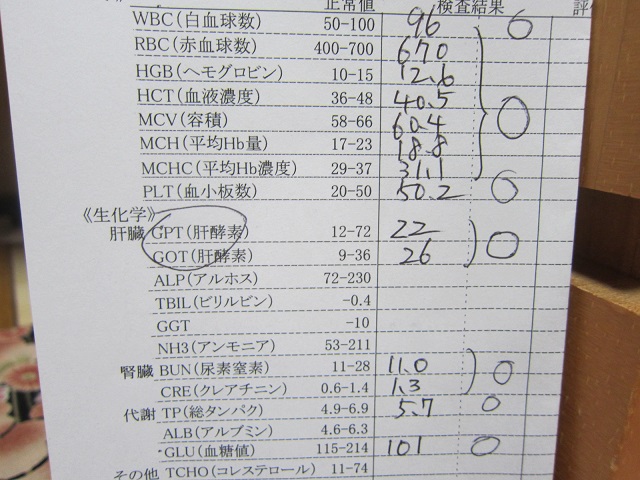 正常値 検査結果 評
WBC(白血球数) 50-100 96 ○
RBC(赤血球数) 400-700 670
HGB(ヘモグロビン) 10-15 12.6
HCT(血液濃度) 36-48 40.5
MCV(容積) 58-66 60.4 ○
MCH(平均Hb量) 17-23 18.8
MCHC(平均Hb濃度) 29-37 31.1
PLT(血小板数) 20-50 50.2 ○
《生化学》
肝臓 GPT(肝酵素) 12-72 22
GOT(肝酵素) 9-36 26 ○
ALP(アルホス) 72-230
TBIL(ビリルビン) -0.4
GGT -10
NH3(アンモニア) 53-211
腎臓 BUN(尿素窒素) 11-28 11.0 ○
CRE(クレアチニン) 0.6-1.4 1.3
代謝 TP(総タンパク) 4.9-6.9 5.7 ○
ALB(アルブミン) 4.6-6.3
・GLU(血糖値) 115-214 101 ○
その他 TCHO(コレステロール) 11-74